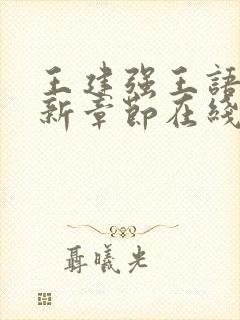 王建强王語
新章節在綫
聶曦光